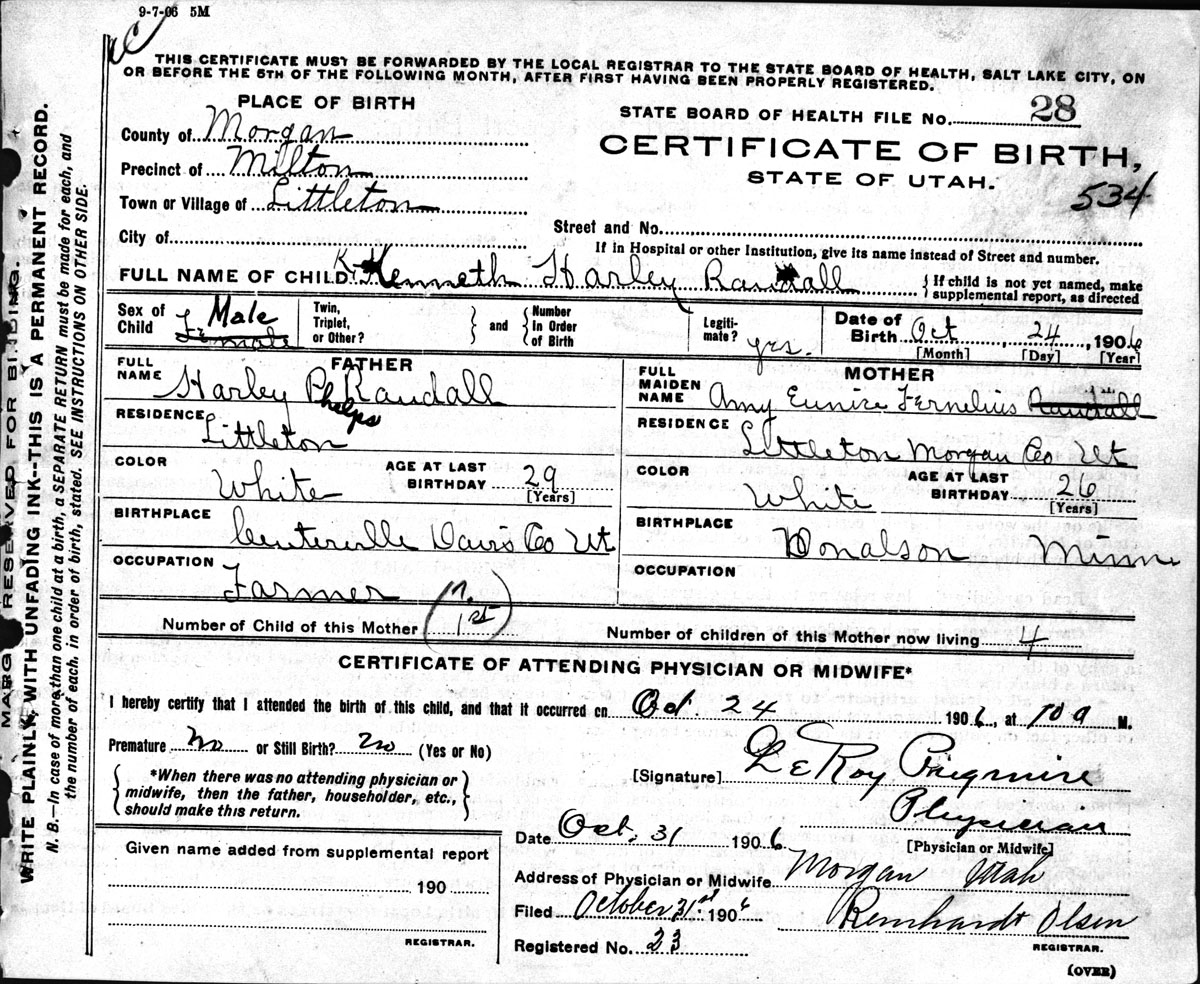 9-7-06 5M
THIS CERTIFICATE MUST BE FORWARDED BY THE LOCAL REGISTRAR TO THE STATE BOARD OF HEALTH, SALT LAKE CITY, ON
OR BEFORE THE 5TH OF THE FOLLOWING MONTH, AFTER FIRST HAVING BEEN PROPERLY REGISTERED.
PLACE OF BIRTH
County of Morgan
Precinct of Milton
Town or Village of Littleton
City of
STATE BOARD OF HEALTH FILE No. 28
CERTIFICATE OF BIRTH,
STATE OF UTAH.
534
Street and No.
If in Hospital or other Institution, give its name instead of Street and number.
FULL NAME OF CHILD Kenneth Harley Randall
If child is not yet named, make
supplemental report, as directed
Sex of Child Male Female
Twin, Triplet, or Other?
and
Number in Order of Birth
Legiti-mate? yes.
Date of Birth Oct 24, 1906
[Month] [Day] [Year]
FATHER
FULL NAME Harley P Randall
Phelps
RESIDENCE Littleton
COLOR White AGE AT LAST BIRTHDAY 29
[Years]
BIRTHPLACE Centerville Davis Co Ut
OCCUPATION Farmer
MOTHER
FULL MAIDEN NAME Amy Eunice Fernelius Randall
RESIDENCE Littleton Morgan Co Ut
COLOR White AGE AT LAST BIRTHDAY 26
[Years]
BIRTHPLACE Donalson Minn
OCCUPATION
Number of Child of this Mother 1st
Number of children of this Mother now living 4
CERTIFICATE OF ATTENDING PHYSICIAN OR MIDWIFE*
I hereby certify that I attended the birth of this child, and that it occurred on Oct. 24 1906, at 10 a M.
Premature No or Still Birth? No (Yes or No)
*When there was no attending physician or
midwife, then the father, householder, etc.,
should make this return.
[Signature] LeRoy Pugmire
Physician
[Physician or Midwife]
Date Oct. 31 1906
Address of Physician or Midwife Morgan Utah
Filed October 31st 1906 Reinhardt Olsen
REGISTRAR.
Registered No. 23
(OVER)
Given name added from supplemental report
190
REGISTRAR.
MARG RESERVED FOR BINDING.
WRITE PLAINLY, WITH UNFADING INK--THIS IS A PERMANENT RECORD.
N. B.—In case of more than one child at a birth, a SEPARATE RETURN must be made for each, and
the number of each, in order of birth, stated. SEE INSTRUCTIONS ON OTHER SIDE.